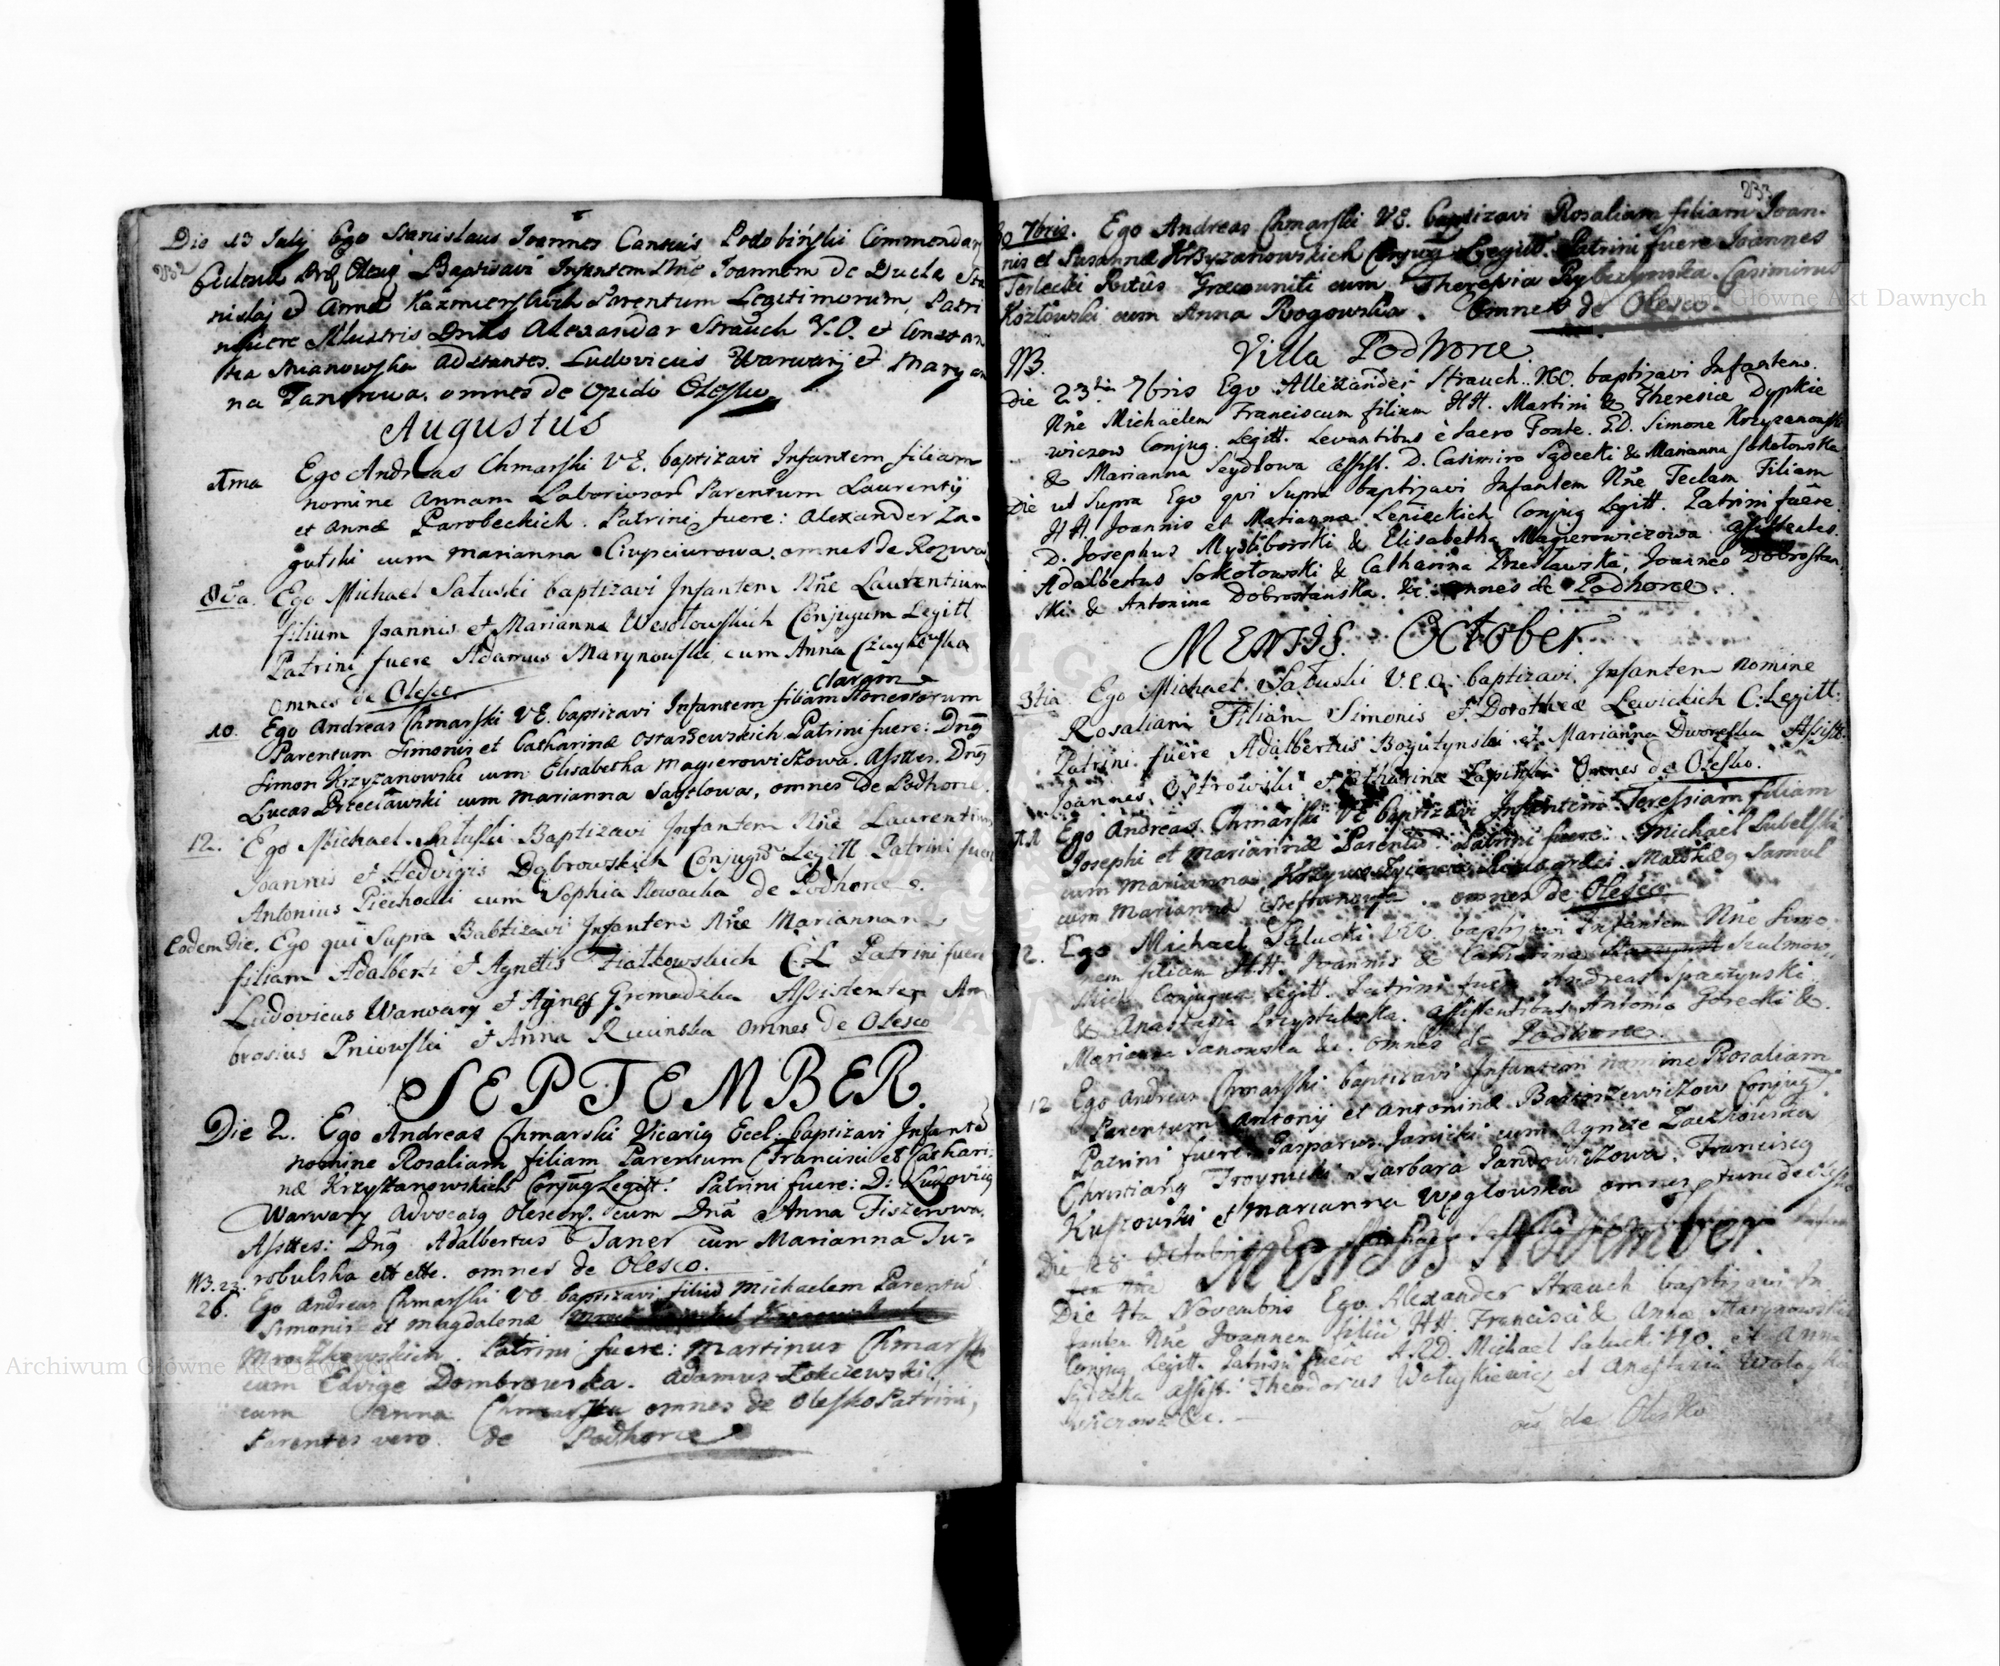 232
Die 13 Julij Ego Stanislaus Joannes Cansius Podobiński Commendar
Baptisavi Infantem Nñe Joannem de Ducla Sta
nislaj et Annæ Kazmierskich Parentum Legitimorum, Patri
nifuere Illustris Dnus Alexander Strauch V.O. et Constan
tia Mianowska Adstantes Ludovicus Warwarij et Maryan
na Tanerowa. omnes de Opido Olesko
Augustus
1ma Ego Andreas Chmarski VE. baptizavi Infantem filiam
nomine Annam Laboriosor Parentum Laurentij
et Annæ Parobeckich. Patrini fuere: Alexander Za=
gutski cum Marianna Ciupciurowa. omnes de Rozwa
8va. Ego Michael Satuski baptizavi Infantem Nñe Laurentium
filium Joannis et Marianna Wesołowskich Conjugum Legitt
Patrini fuere Adamus Marynowski cum Anna Czaykowska
omnes de Olesco.
Claram
10. Ego Andreas Chmarski VE. baptizavi Infantem filiam Honestorum
Parentum Simonis et Catharinæ Ostaszewskich. Patrini fuere: Dnus
Simon Krzyzanowski cum Elisabetha Magierowiczowa. Assttes. Dnus
Lucas Przecławski cum Marianna Saydlowa, omnes de Podhorce.
12. Ego Michael Satuski Baptizavi Infantem Nñe Laurentium
Joannis et Hedvigis Dąbrowskich Conjugū Legitt Patrini fuere
Antonius Piechocki cum Sophia Nowacka de Podhorce.
Eodem die. Ego qui Supra Babtizavi Infantem Nñe Mariannam
filiam Adalberti et Agnetis Fiatkowskich C:L Patrini fuere
Ludovicus Warwary et Agnes Gromadzka Assistentes Am
brosius Pniowski et Anna Rucinska omnes de Olesco
SEPTEMBER.
Die 2. Ego Andreas Chmarski Vicariq Eccl: baptizavi Infantē
nomine Rosaliam filiam Parentum Francisci et Cathari
næ Krzyżanowskich Conjug Legitt: Patrini fuere: D: Ludoviq
Warwary Advocatq Olescens. cum Dnā Anna Fiszerowa.
Assttes: Dnq Adalbertus Taner cum Marianna Tu=
robulska ett ette. omnes de Olesco.
NB. 23.
26. Ego Andreas Chmarski VE. baptizavi filiū Michaelem Parentū
Simonis et Magdalenæ
Mroczkowskich. Patrini fuere: Martinus Chmarski
cum Edvige Dombrowska. Adamus Zokczewski,
cum Anna Chmarska omnes de Olesko Patrini,
Parentes vero de Podhorce
233
30 7bris. Ego Andreas Chmarski VE. baptizavi Rosaliam filiam Joan-
nis et Susannæ Krzyzanowskich Conjug Legitt. Patrini fuere Joannes
Terlecki Ritûs Græcouniti cum Theresia Rybczynska. Casimirus
Kozłowski cum Anna Rogowska. Omnes de Olesco.
NB. Villa Podhorce
Die 23tia 7bris Ego Allexander Strauch. baptizavi Infantem
Nñe Michaëlem Franciscum filium HH. Martini & Theresiæ Dypkie
wiczow Conjug. Legitt. Levantibus è Sacro Fonte. DD. Simone Krzyzanowski
& Marianna Seydlowa assist. D. Casimiro Sądecki & Marianna Sokołowska
Die ut Supra Ego qvi Supra baptizavi Infantem Nñe Teclam Filiam
HH. Joannis et Mariannæ Lenieckich Conjug Legitt. Patrini fuêre
D. Josephus Mysliborski & Elisabetha Magierowiczowa. assistentes
Adalbertus Sokołowski & Catharina Przesławska, Joannes Dobrostan
ski. & Antonina Dobrostanska. &c. omnes de Podhorce.
MENSIS. October.
3tia Ego Michael Satuski V.E.O. baptizavi Infantem nomine
Rosaliam Filiam Simonis et Dorotheæ Lewickich C: Legitt:
Patrini fuêre Adalbertus Bogutynski et Marianna Dworeska Assist:
Joannes Ostrowski et Catharina Omnes de Olesko.
11 Ego Andreas Chmarski VE baptizavi Infantem Teressiam filiam
Josephi et Mariannæ Parentū. Patrini fuere: Michael Lubelski
cum Marianna Samul
cum Marianna Stefanowska. omnes de Olesco
12. Ego Michael Satucki baptizavi Infantem Nñe Simo
nem filium HH. Joannis & Catharina Szulmow
Conjugum Legitt. Patrini fuêre Andreas
& Anastasia Przystubska. assistentibus Antonio Gorecki &
Marianna Janowska &c. omnes de Podhorce.
12 Ego Andreas Chmarski baptizavi Infantem nomine Rosaliam
Parentum Antonij et Antoninæ Bartoszewiczow Conjug
Patrini fuere Gasparus Janicki cum Agnete Zaczkowska
Christianq Troynicki Barbara Jandowiczowa. Francisq
Kuszowski et Marianna Węglowska omnes
Die 28 Octobris Ego Michael
MENSIS November.
Die 4ta Novembris Ego Alexander Strauch baptizavi In
fantem Nñe Joannem filiū HH. Francisci & Annæ Marynowskich
Conjug Legitt. Patrini fuêre A.RD. Michael Satucki et Anna
Sądecka assist: Theodorus Wołuskiewicz et Anastazia
&c.
oēs de Olesko
Archiwum Główne Akt Dawnych
Archiwum Główne Akt Dawnych